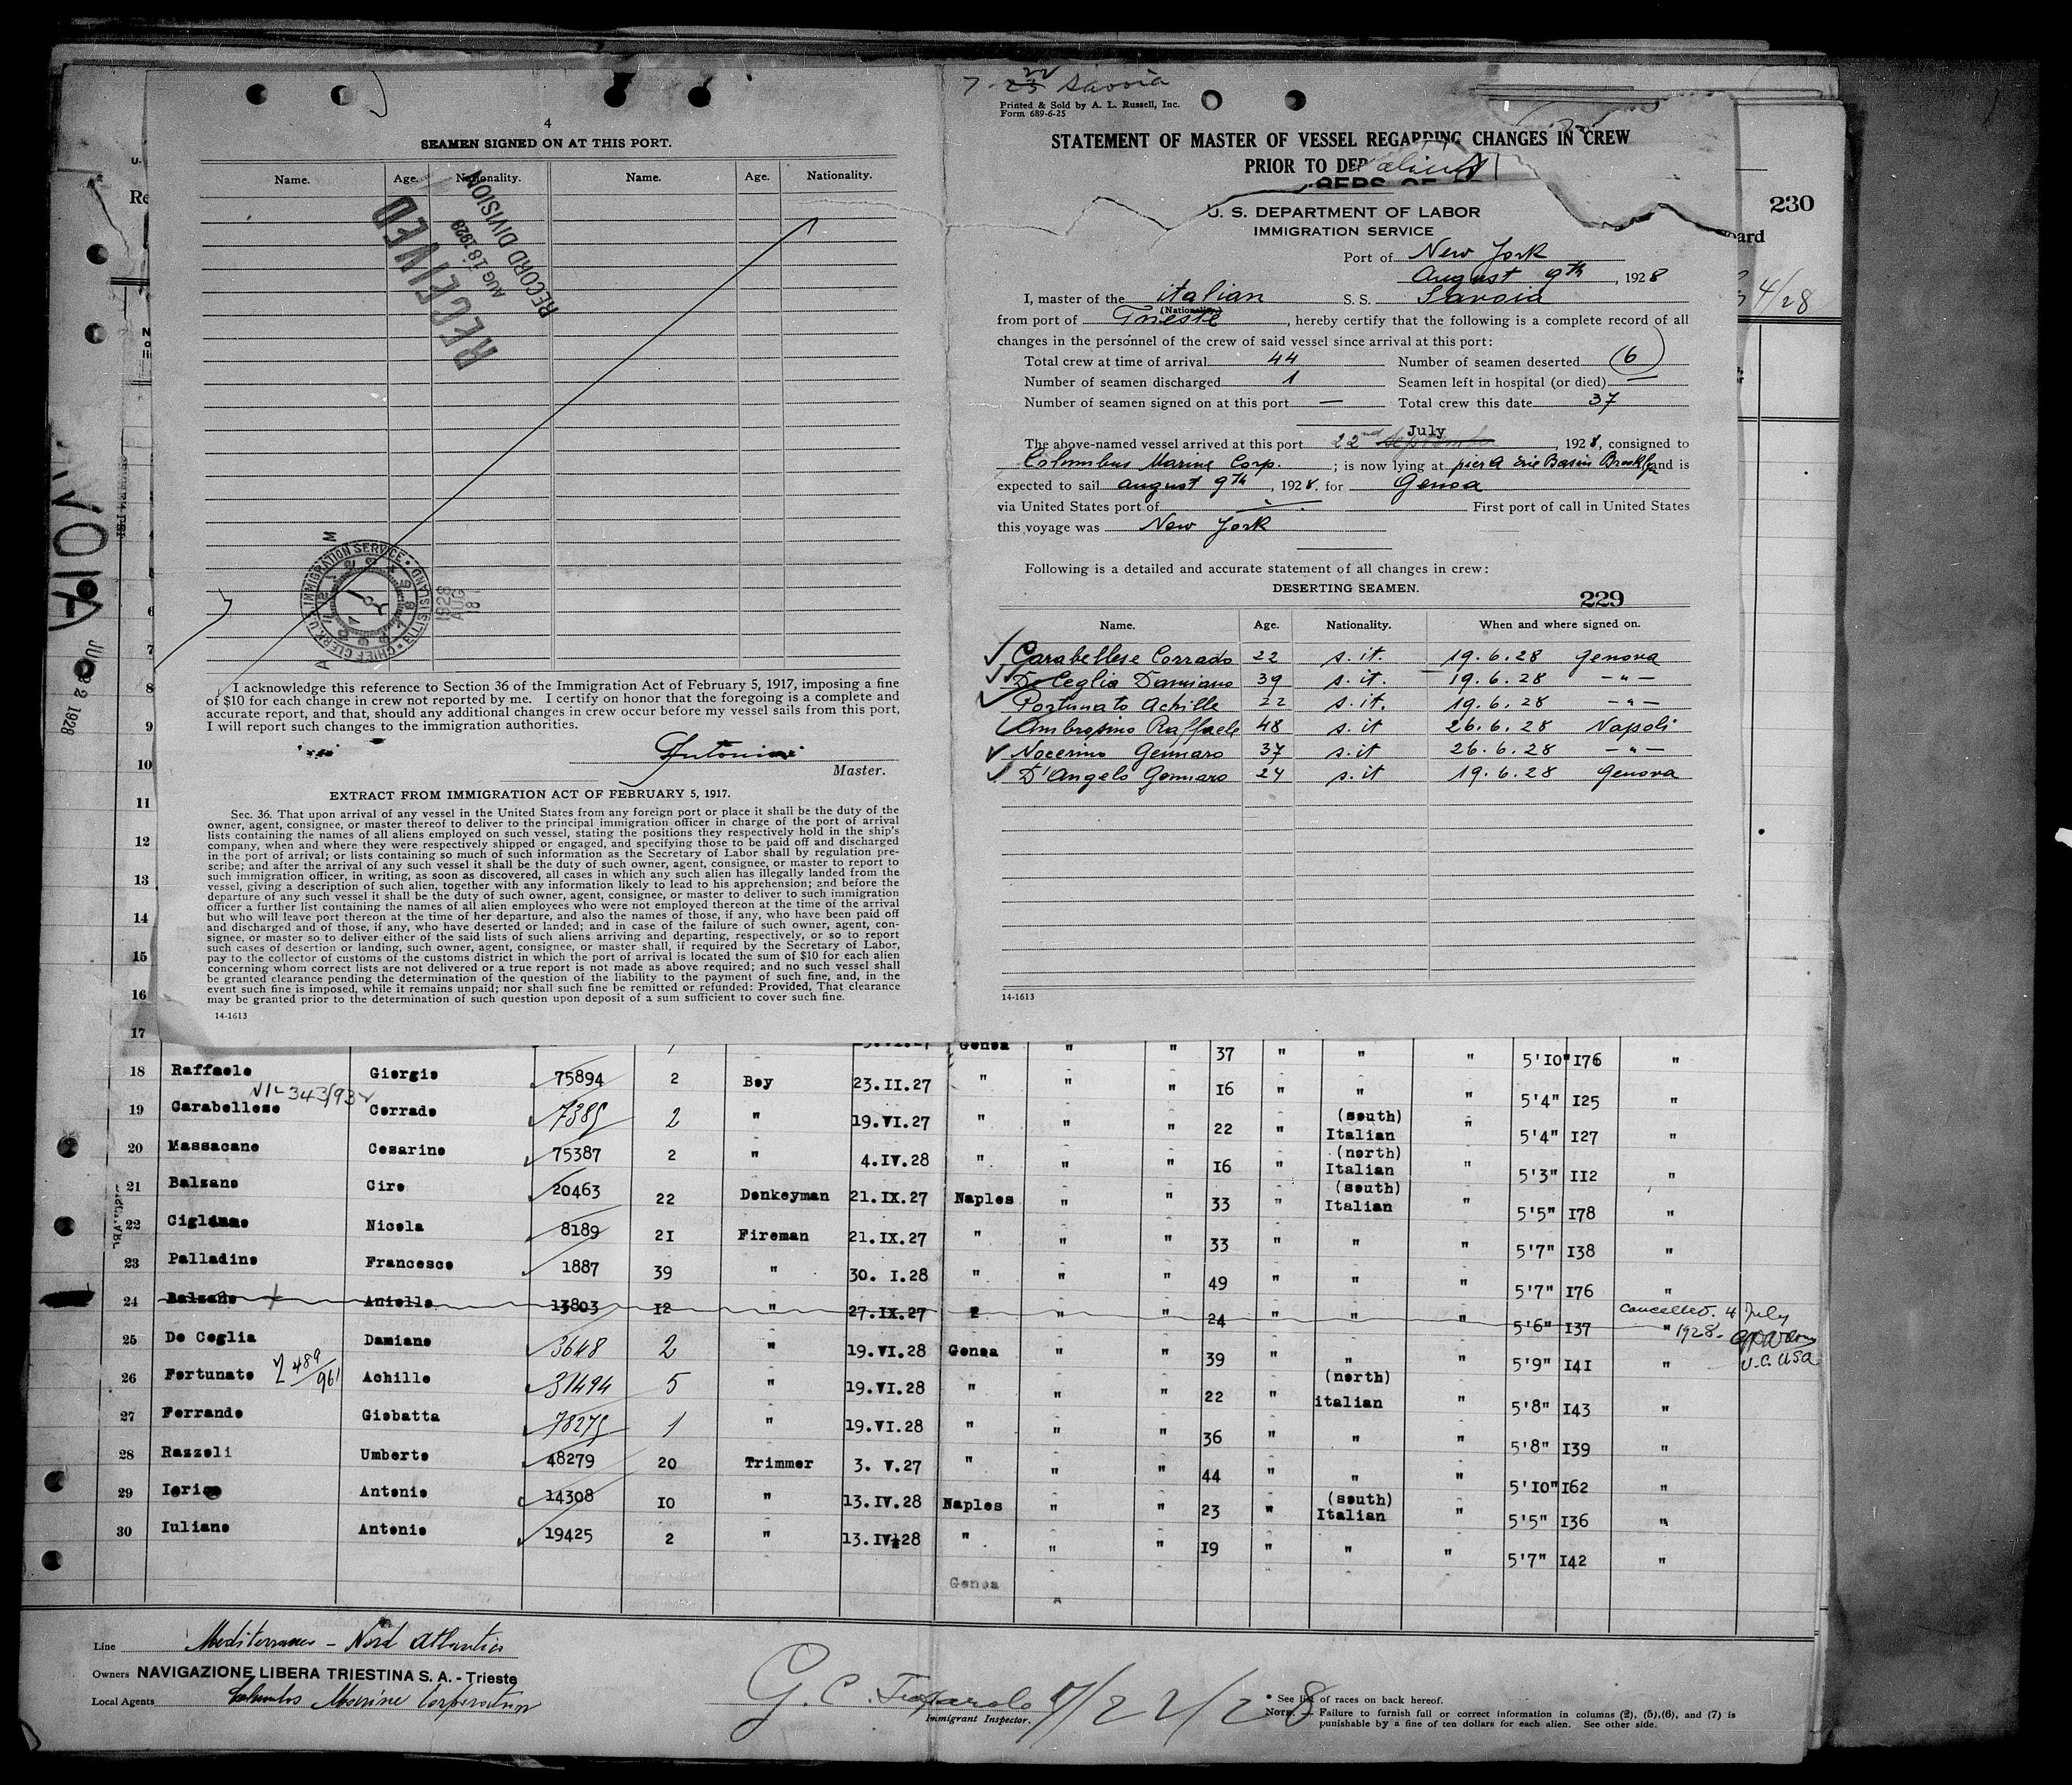 4
SEAMEN SIGNED ON AT THIS PORT.
Name. Age. Nationality. Name. Age. Nationality.
RECEIVED
AUG 18 1928
RECORD DIVISION
CHIEF CLERK U.S. IMMIGRATION SERVICE
1928
AUG
I acknowledge this reference to Section 36 of the Immigration Act of February 5, 1917, imposing a fine
of $10 for each change in crew not reported by me. I certify on honor that the foregoing is a complete and
accurate report, and that, should any additional changes in crew occur before my vessel sails from this port,
I will report such changes to the immigration authorities.
Master.
EXTRACT FROM IMMIGRATION ACT OF FEBRUARY 5, 1917.
Sec. 36. That upon arrival of any vessel in the United States from any foreign port or place it shall be the duty of the
owner, agent, consignee, or master thereof to deliver to the principal immigration officer in charge of the port of arrival
lists containing the names of all aliens employed on such vessel, stating the positions they respectively hold in the ship's
company, when and where they were respectively shipped or engaged, and specifying those to be paid off and discharged
in the port of arrival; or lists containing so much of such information as the Secretary of Labor shall by regulation pre-
scribe; and after the arrival of any such vessel it shall be the duty of such owner, agent, consignee, or master to report to
such immigration officer, in writing, as soon as discovered, all cases in which any such alien has illegally landed from the
vessel, giving a description of such alien, together with any information likely to lead to his apprehension; and before the
departure of any such vessel it shall be the duty of such owner, agent, consignee, or master to deliver to such immigration
officer a further list containing the names of all alien employees who were not employed thereon at the time of the arrival
but who will leave port thereon at the time of her departure, and also the names of those, if any, who have been paid off
and discharged and of those, if any, who have deserted or landed; and in case of the failure of such owner, agent, con-
signee, or master so to deliver either of the said lists of such aliens arriving and departing, respectively, or so to report
such cases of desertion or landing, such owner, agent, consignee, or master shall, if required by the Secretary of Labor,
pay to the collector of customs of the customs district in which the port of arrival is located the sum of $10 for each alien
concerning whom correct lists are not delivered or a true report is not made as above required; and no such vessel shall
be granted clearance pending the determination of the question of the liability to the payment of such fine, and, in the
event such fine is imposed, while it remains unpaid; nor shall such fine be remitted or refunded: Provided, That clearance
may be granted prior to the determination of such question upon deposit of a sum sufficient to cover such fine.
14-1613
Savoia
Printed & Sold by A. L. Russell, Inc.
Form 689-6-25
STATEMENT OF MASTER OF VESSEL REGARDING CHANGES IN CREW
PRIOR TO DEP
U. S. DEPARTMENT OF LABOR
IMMIGRATION SERVICE
230
4/28
Port of New York
August 9th, 1928
I, master of the italian S. S. Savoia
(Nationality)
from port of Trieste, hereby certify that the following is a complete record of all
changes in the personnel of the crew of said vessel since arrival at this port:
Total crew at time of arrival 44 Number of seamen deserted (6)
Number of seamen discharged 1 Seamen left in hospital (or died) —
Number of seamen signed on at this port — Total crew this date 37
July
The above-named vessel arrived at this port 22nd September, 1928, consigned to
Columbus Marine Corp.; is now lying at pier A Erie Basin Brooklyn and is
expected to sail august 9th, 1928. for Genoa
via United States port of First port of call in United States
this voyage was New York
Following is a detailed and accurate statement of all changes in crew:
DESERTING SEAMEN.
229
Name. Age. Nationality. When and where signed on.
Carabellese Corrado 22 s. it. 19.6.28 Genova
De Ceglia Damiano 39 s. it. 19.6.28 – " –
Fortunato Achille 22 s. it. 19.6.28 – " –
Ambrosino Raffaele 48 s. it 26.6.28 Napoli
Nocerino Gennaro 37 s. it 26.6.28 – " –
D'Angelo Gennaro 24 s. it 19.6.28 Genova
14-1613
6
7
8
9
10
11
12
13
14
15
16
17 Genoa " " 37 " " " 5'10" 176 "
18 Raffaele Giorgio 75894 2 Boy 23.II.27 " " " 16 " " " 5'4" 125 "
19 Carabellese Corrado 7385 2 " 19.VI.27 " " " 22 " (south) Italian " 5'4" 127 "
20 Massacane Cesarino 75387 2 " 4.IV.28 " " " 16 " (north) Italian " 5'3" 112 "
21 Balzano Ciro 20463 22 Donkeyman 21.IX.27 Naples " " 33 " (south) Italian " 5'5" 178 "
22 Nicola 8189 21 Fireman 21.IX.27 " " " 33 " " " 5'7" 138 "
23 Palladino Francesco 1887 39 " 30. I.28 " " " 49 " " " 5'7" 176 "
24 Balzano Aniello 13803 12 " 27.IX.27 " " " 24 " " " 5'6" 137 " cancelled. 4 July 1928.
U.C. USA
25 De Ceglia Damiano 3648 2 " 19.VI.28 Genoa " " 39 " " " 5'9" 141 "
26 Fortunato Achille 31494 5 " 19.VI.28 " " " 22 " (north) italian " 5'8" 143 "
27 Ferrando Giobatta 78275 1 " 19.VI.28 " " " 36 " " " 5'8" 139 "
28 Razzoli Umberto 48279 20 Trimmer 3. V.27 " " " 44 " " " 5'10" 162 "
29 Antonio 14308 10 " 13.IV.28 Naples " " 23 " (south) Italian " 5'5" 136 "
30 Iuliano Antonio 19425 2 " 13.IV.28 " " " 19 " " " 5'7" 142 "
Genoa "
Line Mediterraneo – Nord Atlantico
Owners NAVIGAZIONE LIBERA TRIESTINA S. A. - Trieste
Local Agents Columbus Marine Corporation
G. C. 7/22/28
Immigrant Inspector.
* See list of races on back hereof.
NOTE. — Failure to furnish full or correct information in columns (2), (5), (6), and (7) is
punishable by a fine of ten dollars for each alien. See other side.